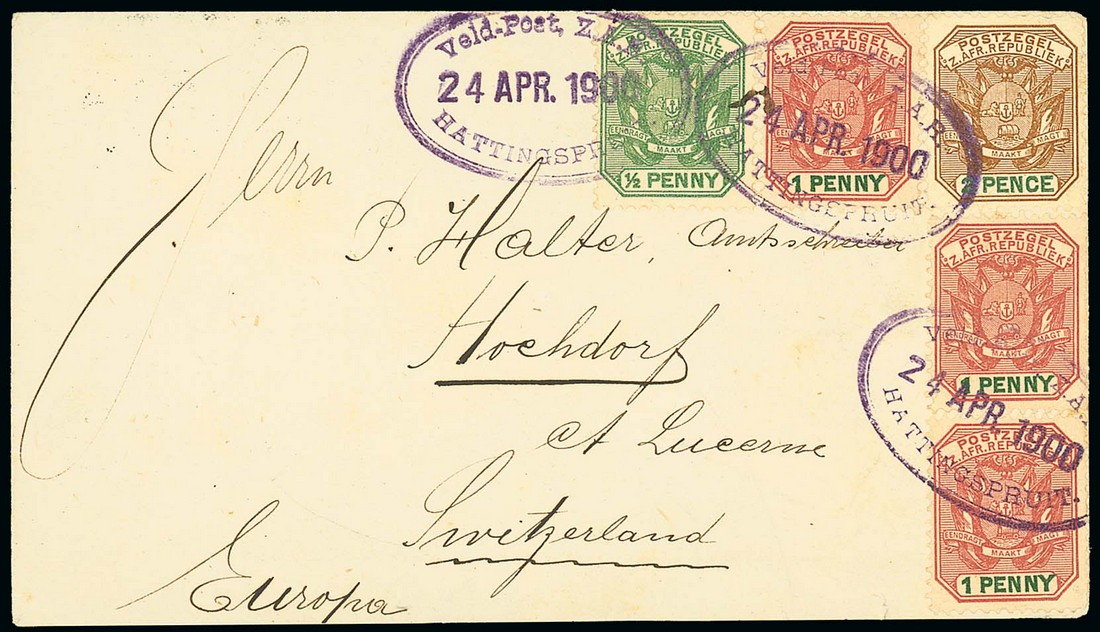 Veld-Post, Z.A.R.
24 APR. 1900
HATTINGSPRUIT.
POSTZEGEL
Z.AFR.REPUBLIEK
EENDRAGT MAAKT MAGT
½ PENNY
POSTZEGEL
Z.AFR.REPUBLIEK
EENDRAGT MAAKT MAGT
1 PENNY
Veld-Post, Z.A.R.
24 APR. 1900
HATTINGSPRUIT.
POSTZEGEL
Z.AFR.REPUBLIEK
EENDRAGT MAAKT MAGT
2 PENCE
Herrn
P. Halter, Amtsschreiber
Hochdorf
Ct Lucerne
Switzerland
Europa
POSTZEGEL
Z.AFR.REPUBLIEK
EENDRAGT MAAKT MAGT
1 PENNY
Veld-Post, Z.A.R.
24 APR. 1900
HATTINGSPRUIT.
POSTZEGEL
Z.AFR.REPUBLIEK
EENDRAGT MAAKT MAGT
1 PENNY